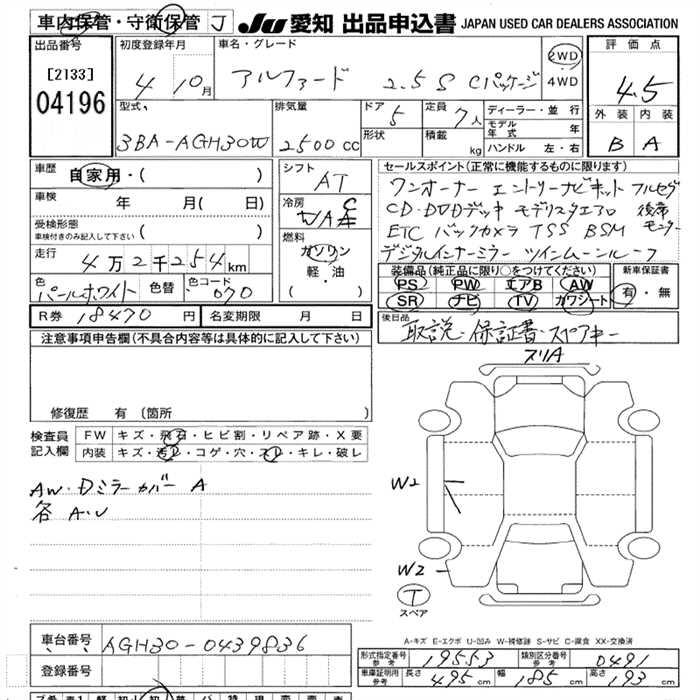 車内保管・守衛保管 J JU 愛知 出品申込書 JAPAN USED CAR DEALERS ASSOCIATION
出品番号 初度登録年月 車名・グレード 評価点
[2133] 04196
4 10月 アルファード 2.5S Cパッケージ 2WD 4WD 4.5
型式 排気量 ドア 定員 ディーラー・並行 外装 内装
3BA-AGH30W 2500cc 5 7人 モデル年式 年 B A
形状 積載 kg ハンドル 左・右
車歴 自家用・( )
シフト AT
セールスポイント(正常に機能するものに限ります)
車検 年 月( 日)
冷房
ワンオーナー エントリーナビキット フルセグ
CD・DVDデッキ モデリスタエアロ 後席
受検形態 車検付きのみ記入して下さい ( )
ETC バックカメラ TSS BSM モニター
燃料 ガソリン 軽・油 ( )
デジタルインナーミラー ツインムーンルーフ
走行 4万2千254km
装備品(純正品に限り○をつけてください) 新車保証書
PS PW エアB AW 有・無
SR ナビ TV カワシート
色 パールホワイト 色替 色コード 070
R券 18470円 名変期限 月 日
後日品 取説・保証書・スペアキー
注意事項申告欄(不具合内容等は具体的に記入して下さい)
修復歴 有 (箇所 )
検査員記入欄 FW キズ・飛石・ヒビ割・リペア跡・X要
内装 キズ・汚レ・コゲ・穴・スレ・キレ・破レ
AW・Dミラーカバー A
各 A・U
W2
W2
T
スペア
A-キズ E-エクボ U-凹み W-補修跡 S-サビ C-腐食 XX-交換済
車台番号 AGH30-0439836
登録番号
形式指定番号 参考 19553 類別区分番号 参考 0491
車庫証明用 参考 長さ 495cm 幅 185cm 高さ 193cm